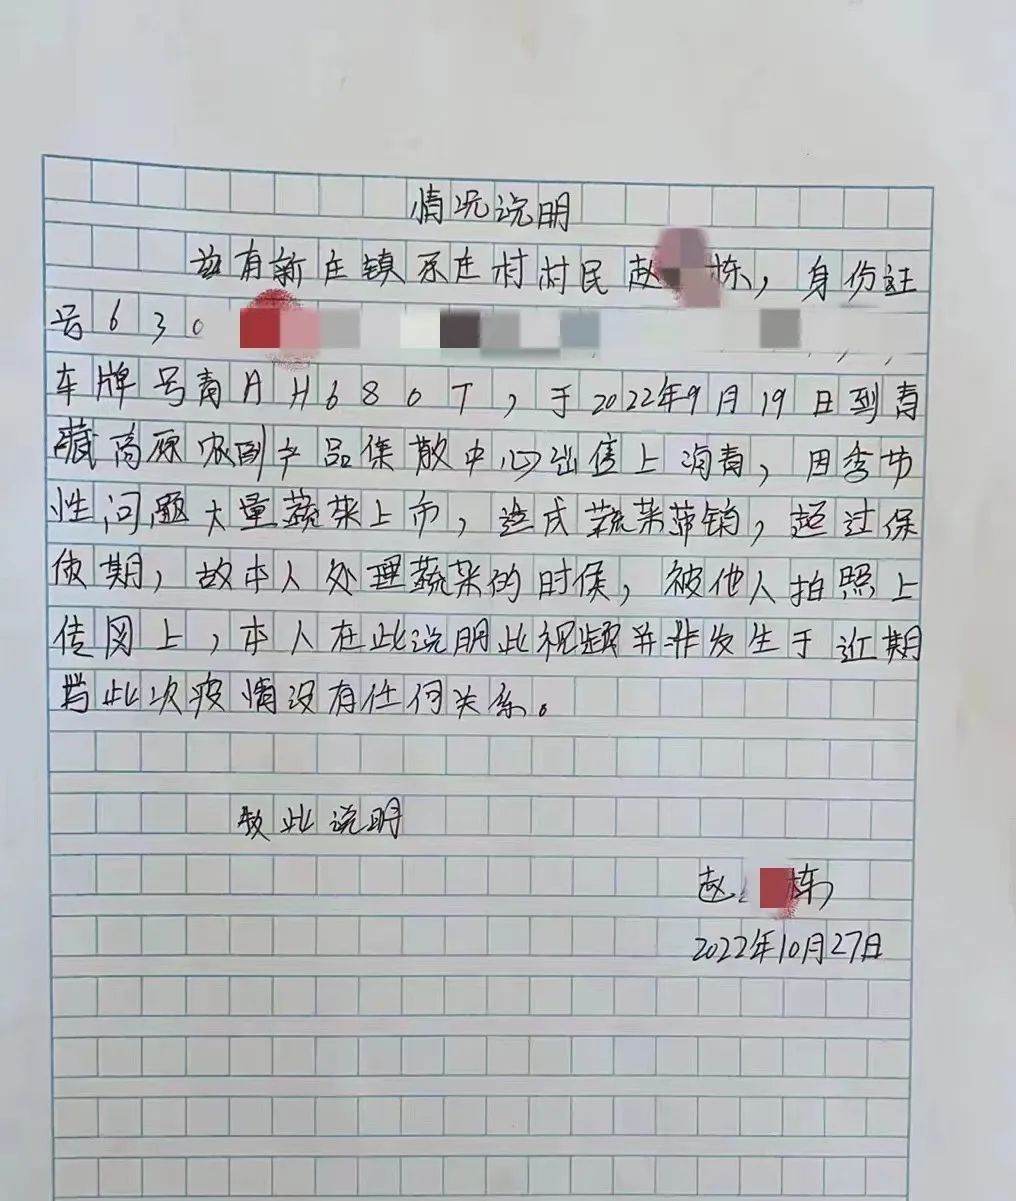 情况说明
兹有新庄镇乐庄村村民赵栋，身份证
号630
车牌号青AH680T，于2022年9月19日到青
藏高原农副产品集散中心出售上海青，因季节
性问题大量蔬菜上市，造成蔬菜滞销，超过保
质期，故本人处理蔬菜的时候，被他人拍照上
传网上，本人在此说明此视频并非发生于近期
与此次疫情没有任何关系。
致此说明
赵栋
2022年10月27日